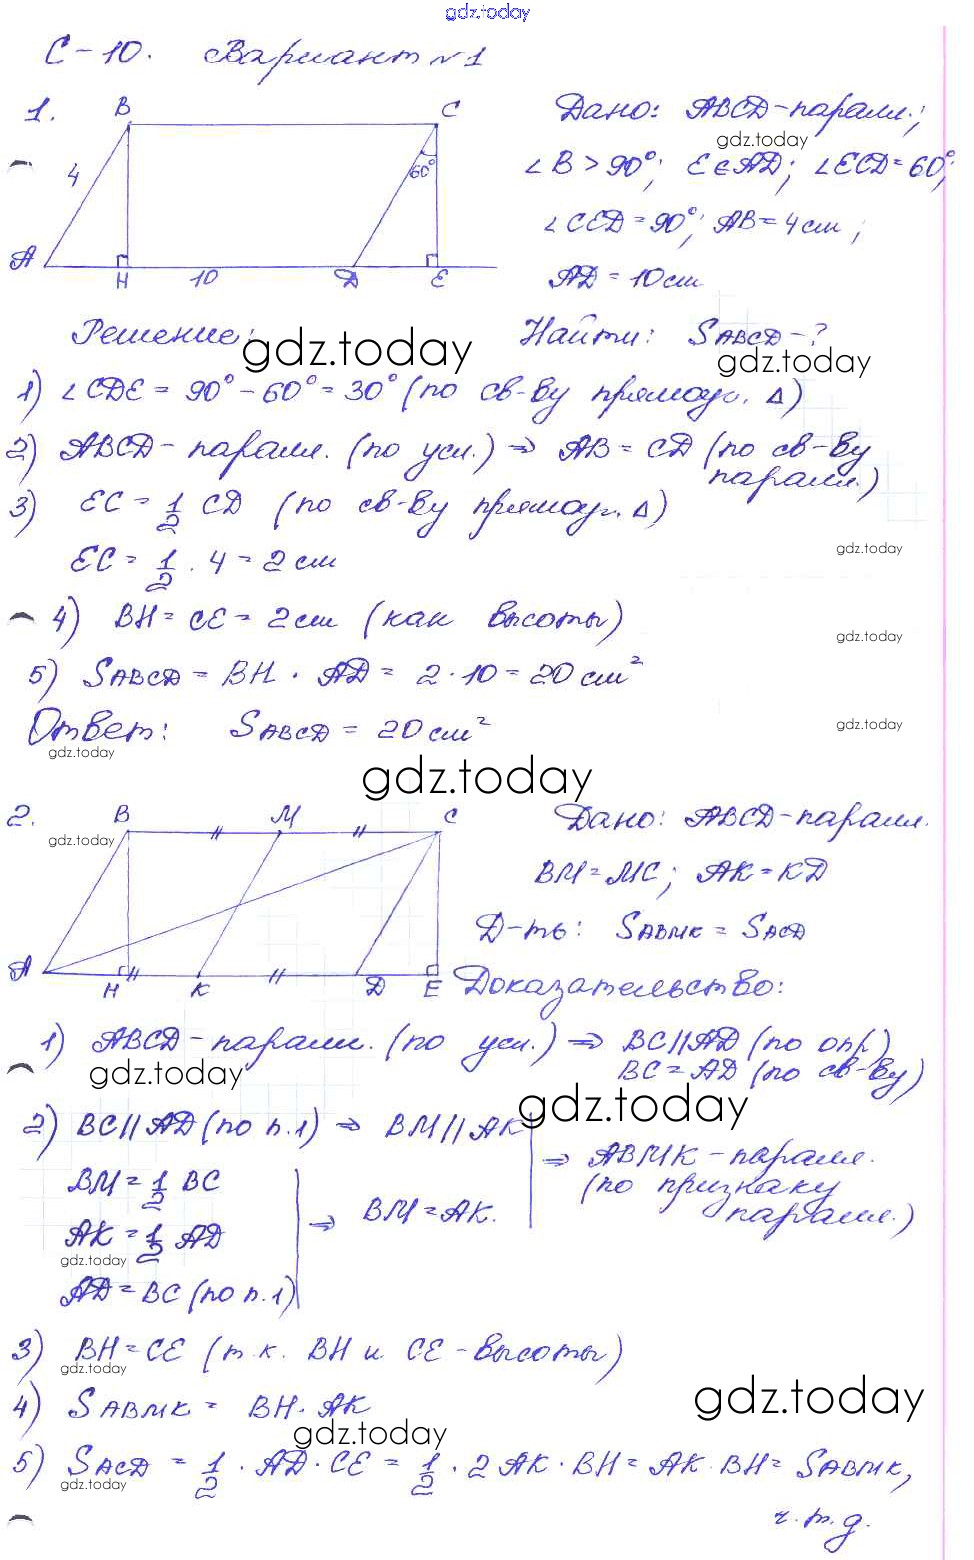 gdz.today
С-10. Вариант №1
1.
B C
4 60°
A H 10 D E
Дано: ABCD-паралл.;
gdz.today
∠B > 90°; E∈AD; ∠ECD = 60°;
∠CED = 90°; AB = 4 см;
AD = 10 см
Решение: Найти: SABCD - ?
gdz.today gdz.today
1) ∠CDE = 90° - 60° = 30° (по св-ву прямоуг. Δ)
2) ABCD - паралл. (по усл.) ⇒ AB = CD (по св-ву
паралл.)
3) EC = 1/2 CD (по св-ву прямоуг. Δ)
gdz.today
EC = 1/2 · 4 = 2 см
4) BH = CE = 2 см (как высоты)
gdz.today
5) SABCD = BH · AD = 2 · 10 = 20 см²
Ответ: SABCD = 20 см²
gdz.today
gdz.today
gdz.today
2.
B M C
gdz.today
A H K D E
Дано: ABCD-паралл.
BM = MC; AK = KD
Д-ть: SABMK = SACD
Доказательство:
1) ABCD - паралл. (по усл.) ⇒ BC//AD (по опр)
BC = AD (по св-ву)
gdz.today
gdz.today
2) BC//AD (по п.1) ⇒ BM//AK
BM = 1/2 BC
AK = 1/2 AD
gdz.today
AD = BC (по п.1)
⇒ BM = AK.
⇒ ABMK - паралл.
(по признаку
паралл.)
3) BH = CE (т.к. BH и CE - высоты)
gdz.today
4) SABMK = BH · AK
gdz.today
gdz.today
5) SACD = 1/2 · AD · CE = 1/2 · 2AK · BH = AK · BH = SABMK,
gdz.today
ч.т.д.